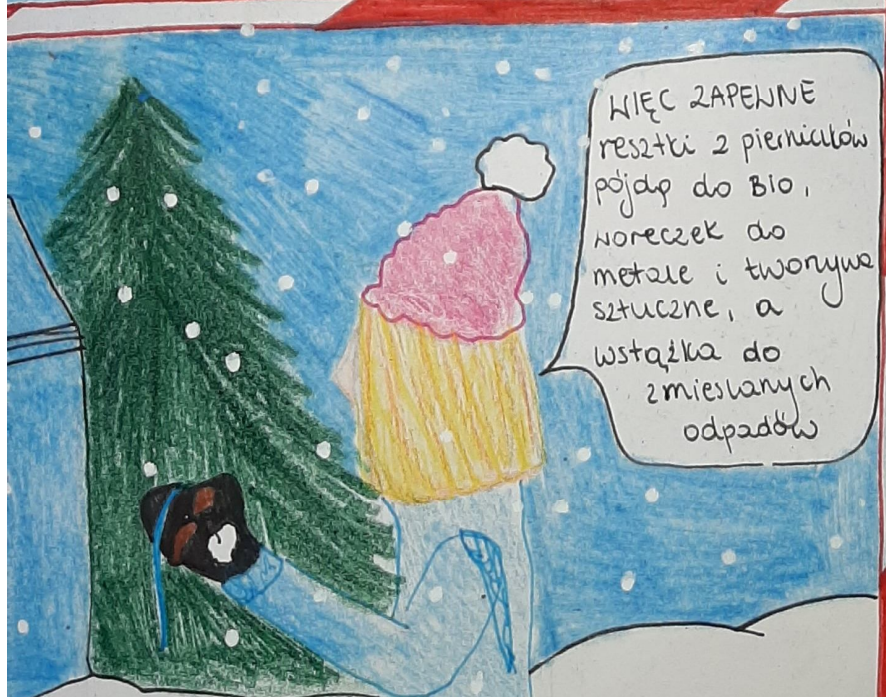 WIĘC ZAPEWNE
resztki z pierniczków
pójdą do Bio,
woreczek do
metale i tworzywa
sztuczne, a
wstążka do
zmieszanych
odpadów